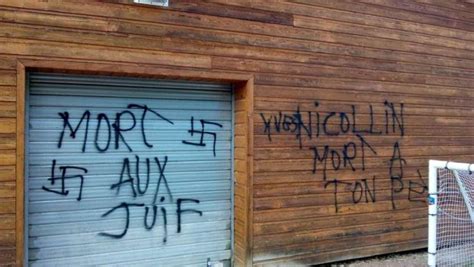 MORT
AUX
JUIF
NICOLLIN
MORT A
TON PÈ